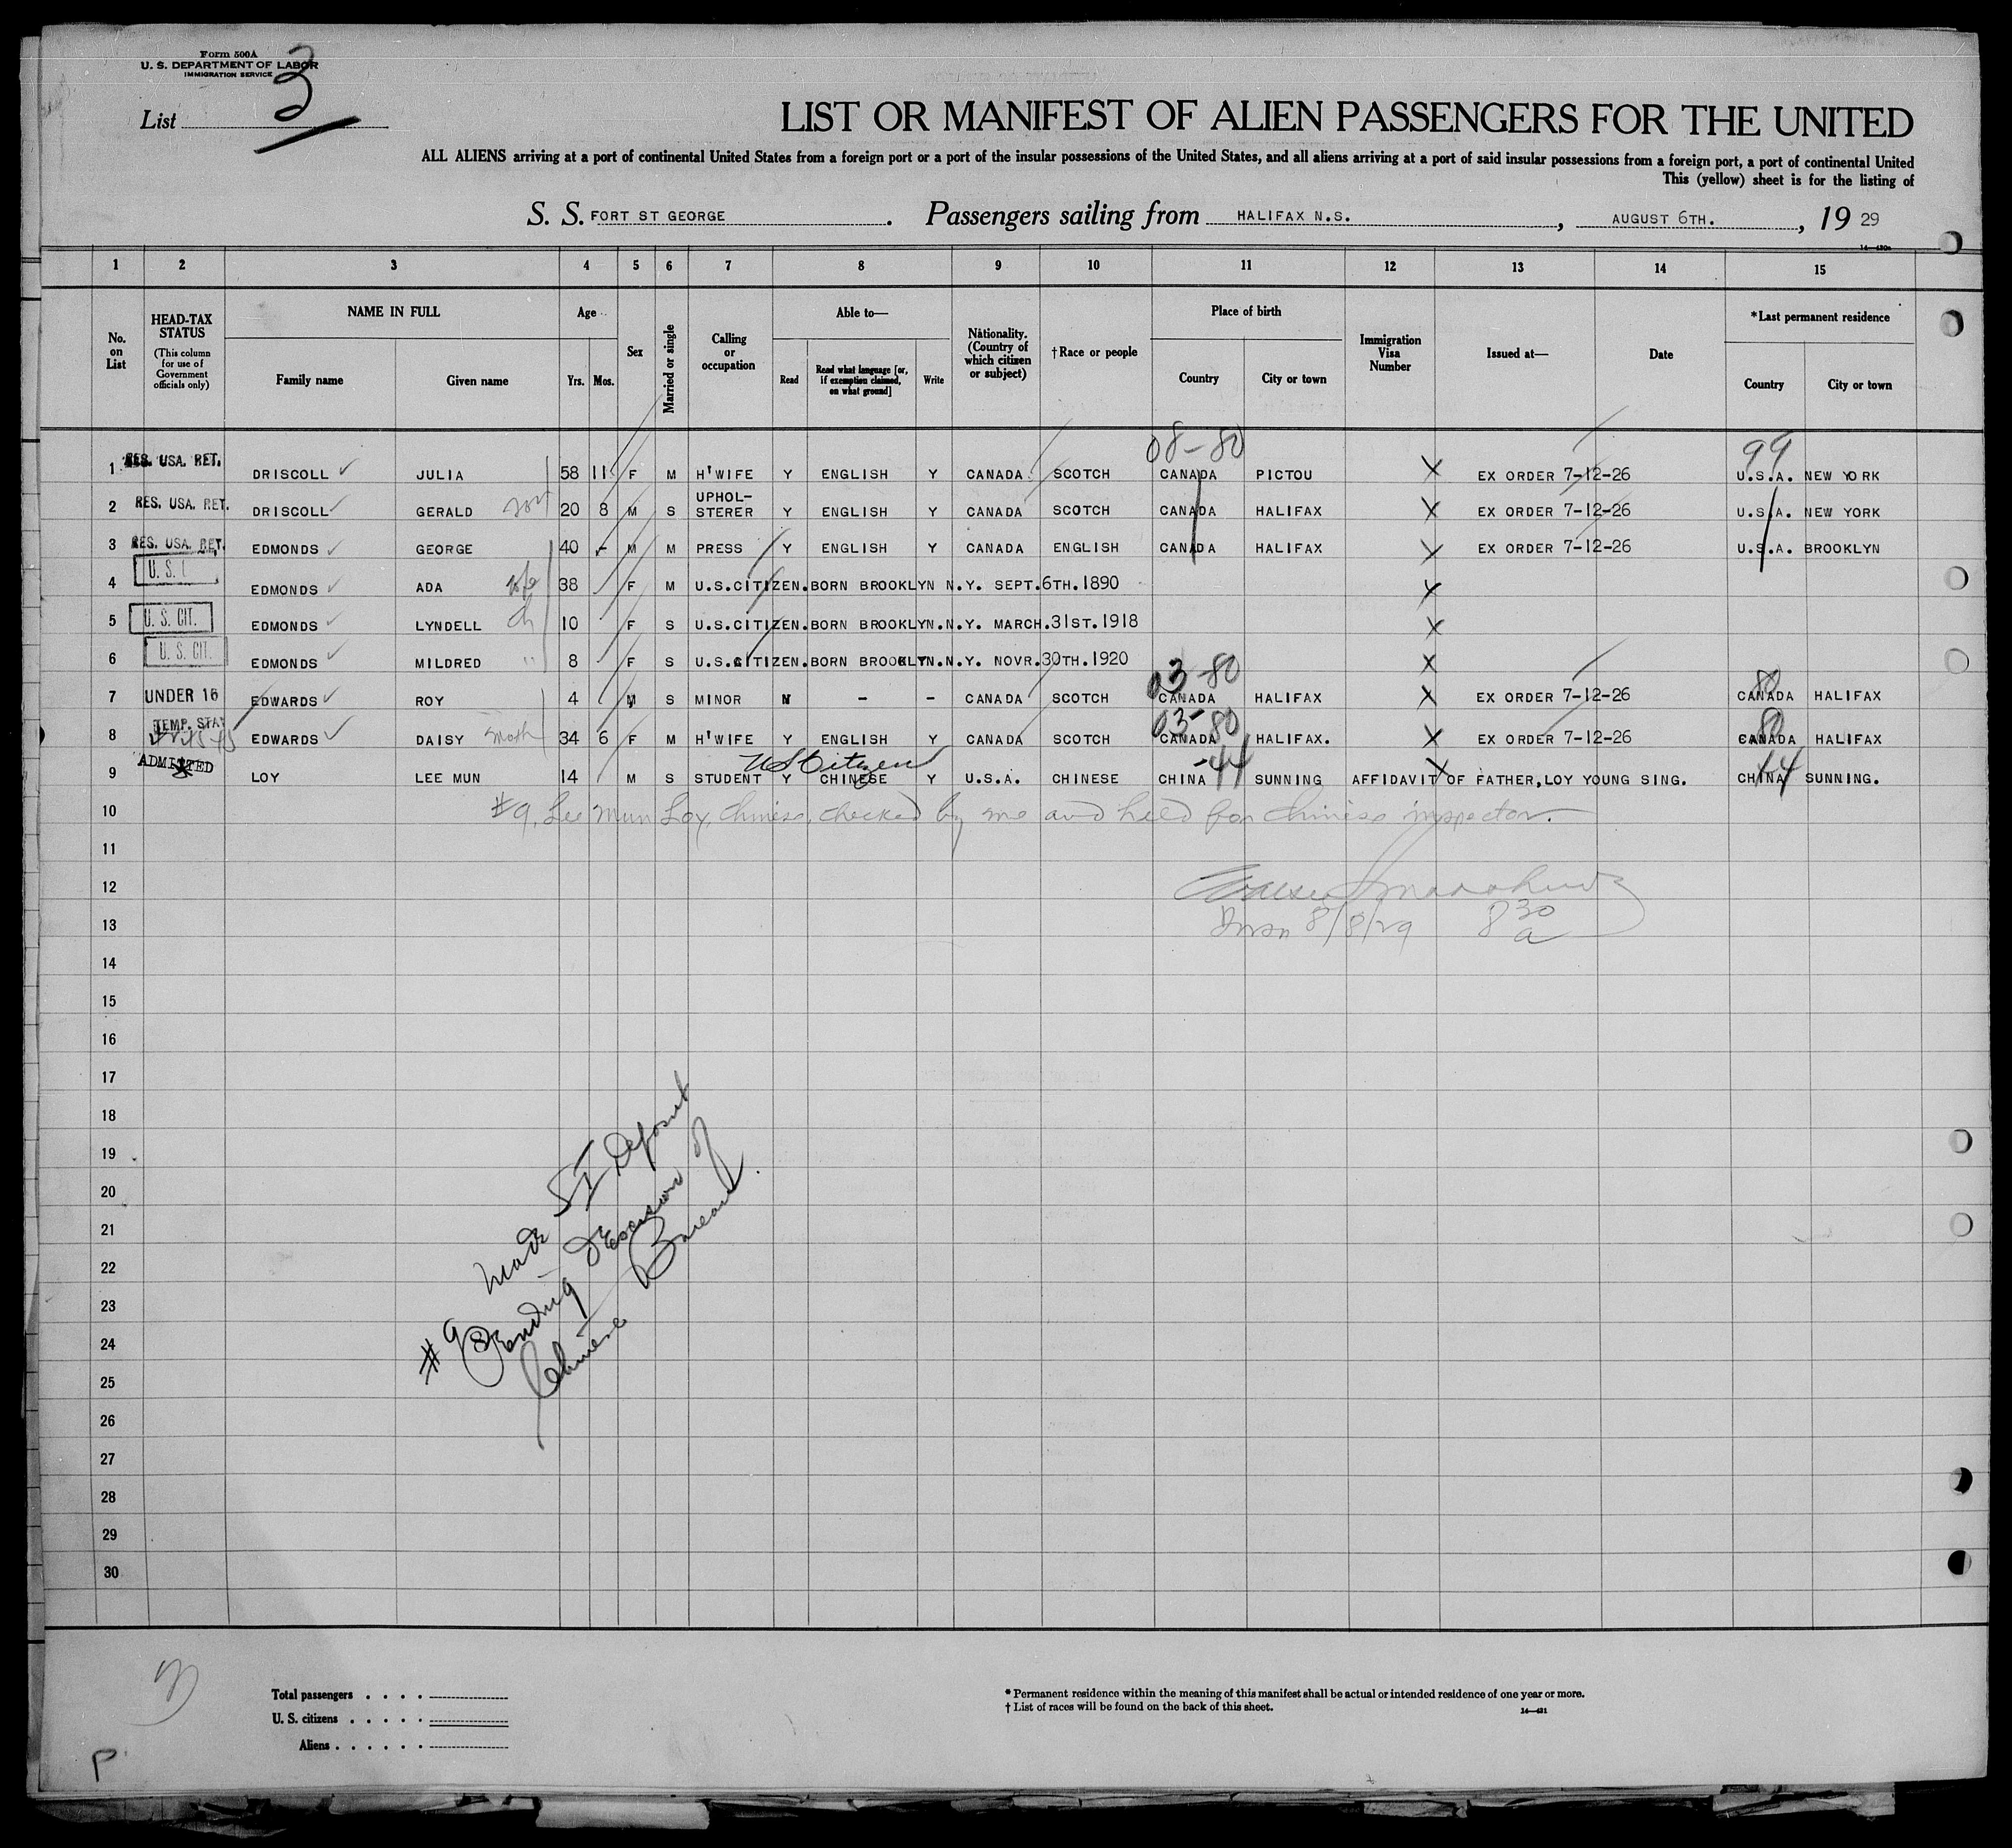 Form 500A
U. S. DEPARTMENT OF LABOR
IMMIGRATION SERVICE
List 3
LIST OR MANIFEST OF ALIEN PASSENGERS FOR THE UNITED
ALL ALIENS arriving at a port of continental United States from a foreign port or a port of the insular possessions of the United States, and all aliens arriving at a port of said insular possessions from a foreign port, a port of continental United
This (yellow) sheet is for the listing of
S. S. FORT ST GEORGE . Passengers sailing from HALIFAX N.S. , AUGUST 6TH. , 19 29
1 2 3 4 5 6 7 8 9 10 11 12 13 14 15
No. on List
HEAD-TAX STATUS (This column for use of Government officials only)
NAME IN FULL
Family name Given name
Age
Yrs. Mos.
Sex
Married or single
Calling or occupation
Able to—
Read
Read what language [or, if exemption claimed, on what ground]
Write
Nationality. (Country of which citizen or subject)
†Race or people
Place of birth
Country City or town
Immigration Visa Number
Issued at—
Date
*Last permanent residence
Country City or town
08-80 99
1 RES. USA. RET. DRISCOLL JULIA 58 11 F M H'WIFE Y ENGLISH Y CANADA SCOTCH CANADA PICTOU X EX ORDER 7-12-26 U.S.A. NEW YORK
2 RES. USA. RET. DRISCOLL GERALD son 20 8 M S UPHOL-STERER Y ENGLISH Y CANADA SCOTCH CANADA HALIFAX X EX ORDER 7-12-26 U.S.A. NEW YORK
3 RES. USA. RET. EDMONDS GEORGE 40 - M M PRESS Y ENGLISH Y CANADA ENGLISH CANADA HALIFAX X EX ORDER 7-12-26 U.S.A. BROOKLYN
4 U. S. EDMONDS ADA wife 38 F M U.S.CITIZEN.BORN BROOKLYN N.Y. SEPT.6TH.1890 X
5 U. S. CIT. EDMONDS LYNDELL ch 10 F S U.S.CITIZEN.BORN BROOKLYN.N.Y. MARCH.31ST.1918 X
6 U. S. CIT. EDMONDS MILDRED " 8 F S U.S.CITIZEN.BORN BROOKLYN.N.Y. NOVR.30TH.1920 X
03-80 80
7 UNDER 16 EDWARDS ROY 4 M S MINOR N - - CANADA SCOTCH CANADA HALIFAX X EX ORDER 7-12-26 CANADA HALIFAX
03-80 80
8 TEMP. STAY EDWARDS DAISY moth 34 6 F M H'WIFE Y ENGLISH Y CANADA SCOTCH CANADA HALIFAX. X EX ORDER 7-12-26 CANADA HALIFAX
US Citizen -44 44
9 ADMITTED LOY LEE MUN 14 M S STUDENT Y CHINESE Y U.S.A. CHINESE CHINA SUNNING X AFFIDAVIT OF FATHER,LOY YOUNG SING. CHINA SUNNING.
10 #9, Lee Mun Loy, Chinese, checked by me and held for Chinese inspector.
11
12
13 8/8/29 8 30 a
14
15
16
17
18
19
20
21
22
23
24
25
26
27
28
29
30
#9 made SI Deposit
Pending Decision of
Chinese Bureau.
Total passengers . . . .
U. S. citizens . . . . .
Aliens . . . . . .
* Permanent residence within the meaning of this manifest shall be actual or intended residence of one year or more.
† List of races will be found on the back of this sheet.
14—431
P